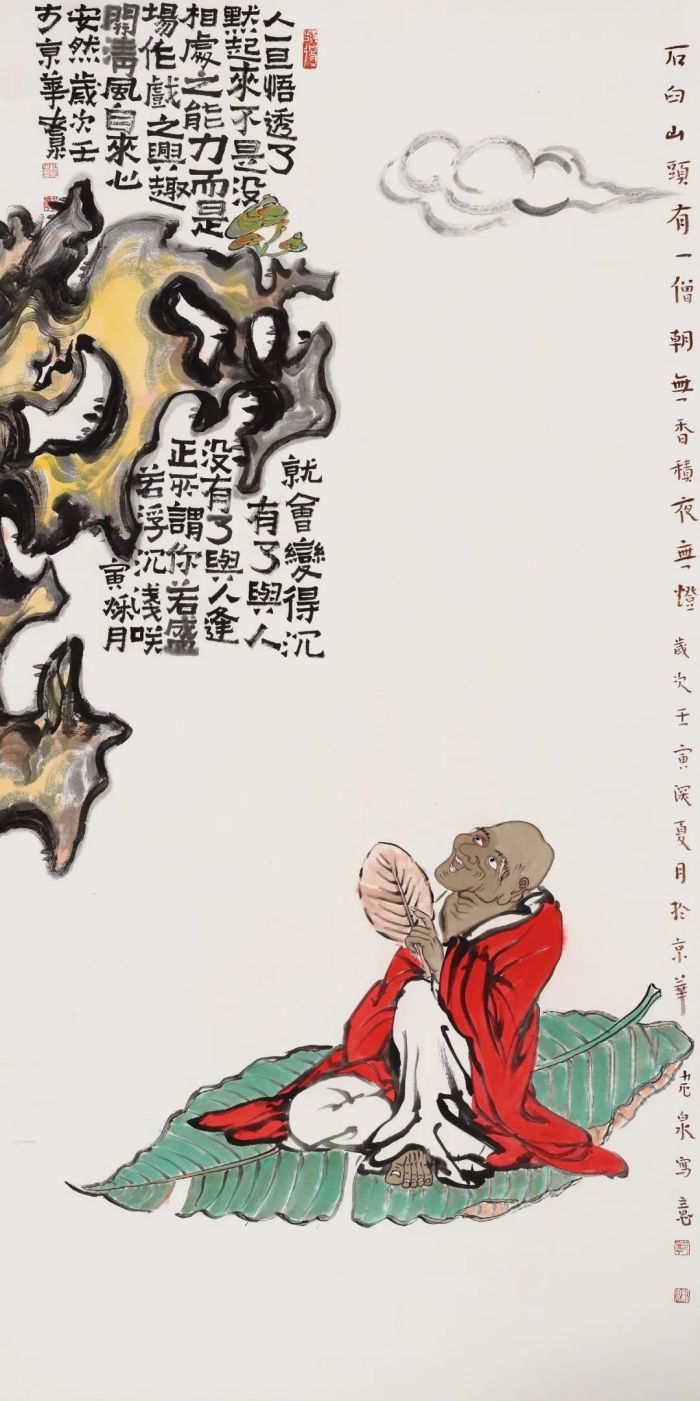 石臼山頭有一僧朝無香積夜無燈歲次壬寅深夏月於京華老泉寫意
人一旦悟透了
就會變得沉
默起來不是没
有了與人
相處之能力而是
没有了與人逢
場作戲之興趣
正所謂你若盛
開清風自來心
若浮沉淺咲
安然歲次壬
寅秋月
于京華老泉